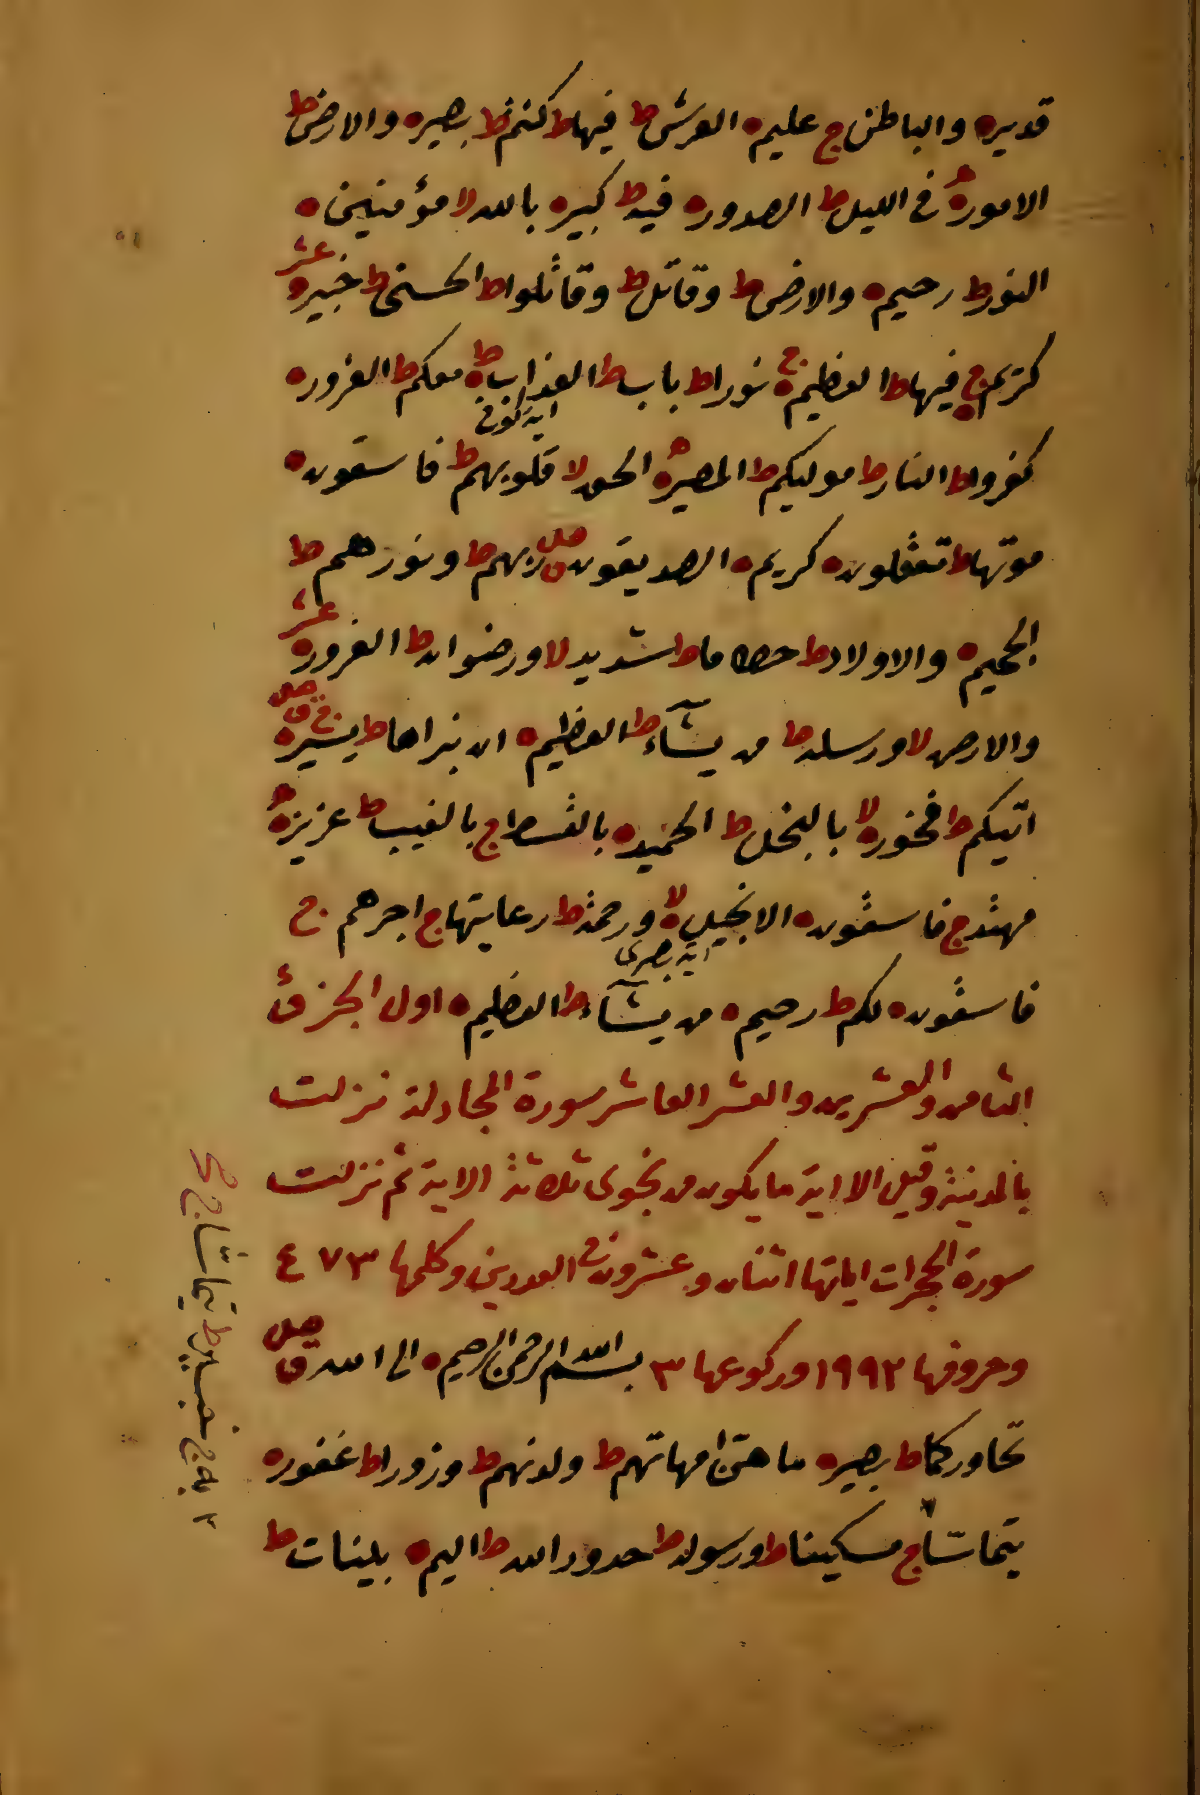 قديره والباطن ج عليم ه العرش ط فيها ط كنتم ط بصير ه والارض ط
الامور ه في الليل ط الصدور ه فيه ط كبير ه بالله لا مؤمنين ه
النور ط رحيم ه والارض ط وقاتل ط وقاتلوا ط الحسنى ط خبير ه عشر
كريم ج ه فيها ط العظيم ه ج نورا ط باب ط العذاب ه ط معكم ط الغرور ه
اية كوفي
كفروا ط النار ط موليكم ط المصير ه الحق لا قلوبهم ط فاسقون ه
موتها ط تعقلون ه كريم ه الصديقون ق صلى ربهم ط ونورهم ط
الجحيم ه والاولاد ط حطاما ط شديد لا ورضوان ط الغرور ه عشر
والارض لا ورسله ط من يشآء ط العظيم ه ان نبراها ط يسير ه
اتيكم ط فخور ه لا بالبخل ط الحميد ه بالقسط ج بالغيب ط عزيز ه
مهتد ج فاسقون ه الانجيل ه لا ورحمة ط رعايتها ج اجرهم ج
اية بصرى
فاسقون ه لكم ط رحيم ه من يشآء ط العظيم ه اول الجزئ
الثامن والعشرين والعشر العاشر سورة المجادلة نزلت
بالمدينة وقيل الا اية ما يكون من نجوى ثلاثة الاية ثم نزلت
سورة الحجرات اياتها اثنان وعشرون في العددين وكلمها ٤٧٣
وحروفها ١٩٩٢ وركوعها ٣ بسم الله الرحمن الرحيم ه الى الله ق صلى
تحاوركما ط بصير ه ما هن امهاتهم ط ولدنهم ط وزورا ط غفور ه
يتماسّا ج مسكينا ط ورسوله ط حدود الله ط اليم ه بينات ط